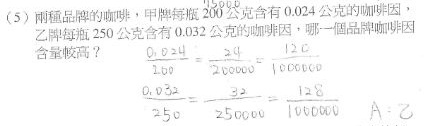 75000
(5) 兩種品牌的咖啡，甲牌每瓶 200 公克含有 0.024 公克的咖啡因，
乙牌每瓶 250 公克含有 0.032 公克的咖啡因，哪一個品牌咖啡因
含量較高？
0.024/200 = 24/200000 = 120/1000000
0.032/250 = 32/250000 = 128/1000000 A：乙